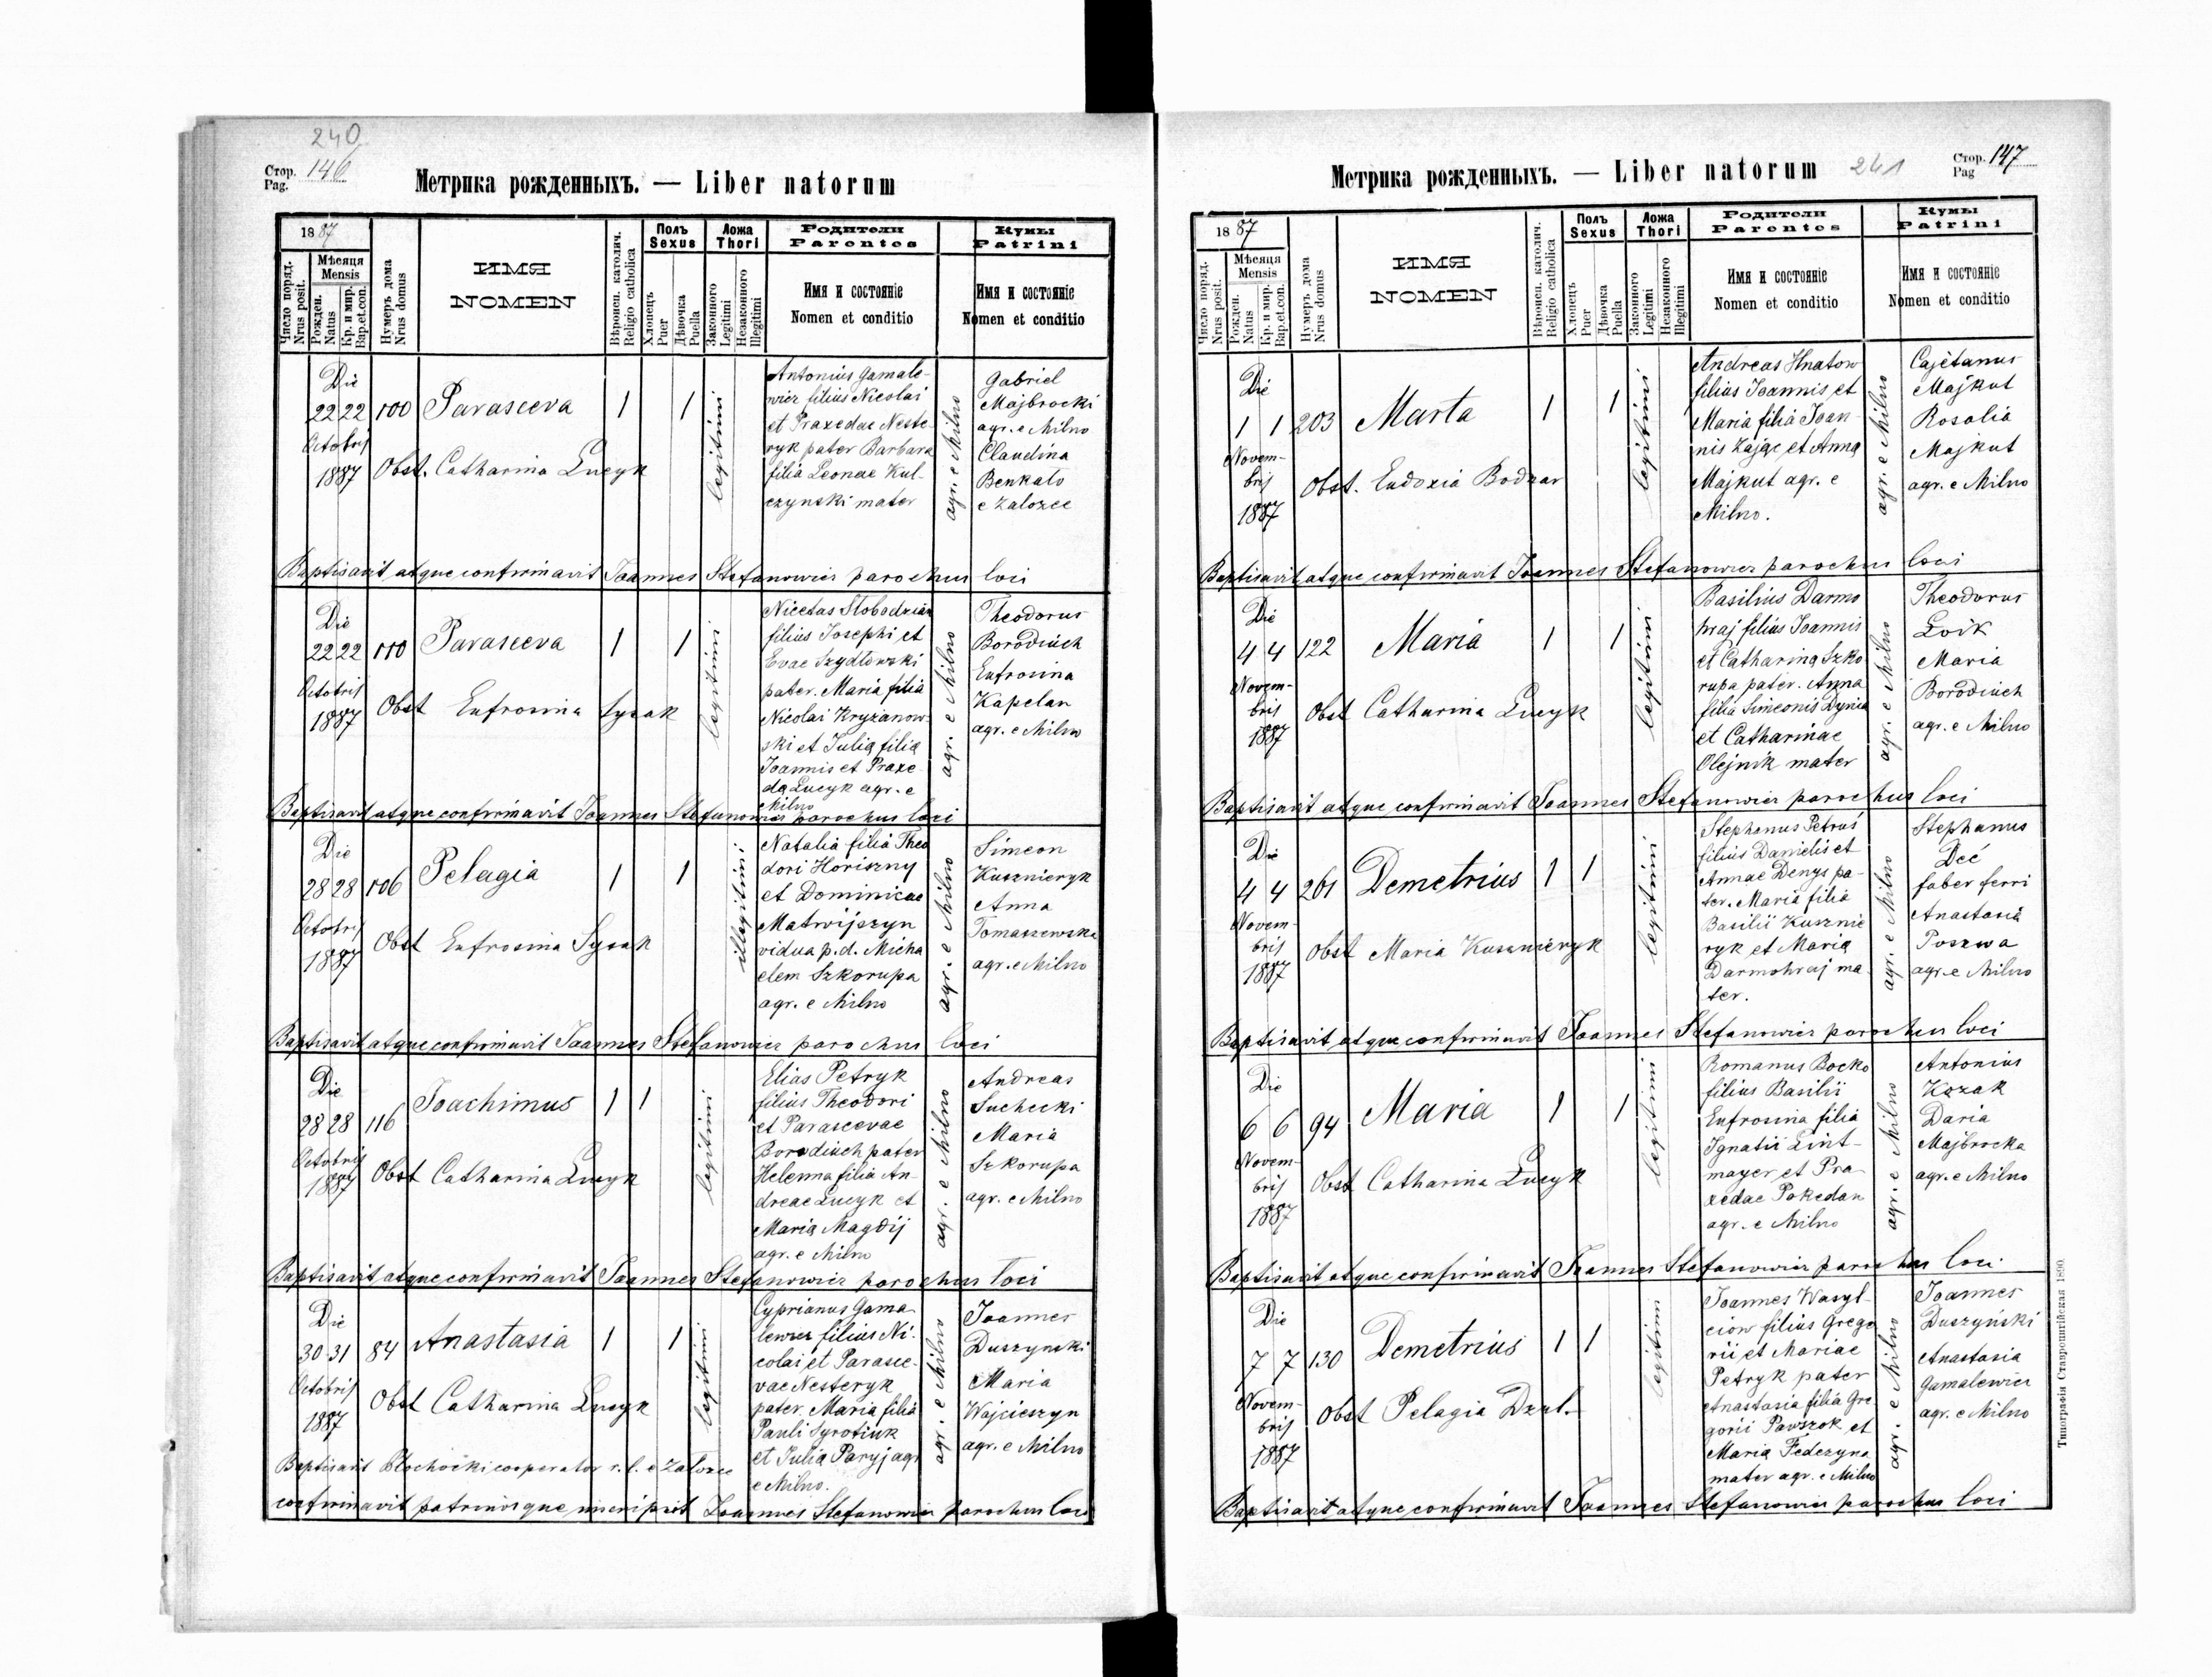 240
Стор. 146
Pag.
Метрика рожденныхъ. — Liber natorum
1887
Число поряд.
Nrus posit.
Мѣсяця
Mensis
Рожден.
Natus
Кр. и мир.
Bap.et.con.
Нумеръ дома
Nrus domus
ИМЯ
NOMEN
Вѣроисп. католич.
Religio catholica
Полъ
Sexus
Хлопецъ
Puer
Дѣвочка
Puella
Ложа
Thori
Законного
Legitimi
Незаконного
Illegitimi
Родители
Parentes
Имя и состояніе
Nomen et conditio
Кумы
Patrini
Имя и состояніе
Nomen et conditio
Die
22 22 100 Parasceva 1 1
Octobris
1887 Obst. Catharina Lucyk
legitimi
Antonius Gamale-
wicz filius Nicolai
et Praxedae Neste-
ryk pater Barbara
filia Leonae Kul-
czynski mater
agr. e Milno
Gabriel
Majbrocki
agr. e Milno
Claudina
Benkalo
e Zalozce
Baptisavit atque confirmavit Joannes Stefanowicz parochus loci
Die
22 22 110 Parasceva 1 1
Octobris
1887 Obst Eufrosina Sysak
legitimi
Nicetas Slobodzian
filius Josephi et
Evae Szydłowski
pater. Maria filia
Nicolai Kryżanow-
ski et Julia filia
Joannis et Praxe-
da Lucyk agr. e
Milno
agr. e Milno
Theodorus
Borodiuch
Eufrosina
Kapelan
agr. e Milno
Baptisavit atque confirmavit Joannes Stefanowicz parochus loci
Die
28 28 106 Pelagia 1 1
Octobris
1887 Obst Eufrosina Sysak
illegitimi
Natalia filia Theo
dori Horiszny
et Dominicae
Matwijszyn
vidua p.d. Micha
elem Szkorupa
agr. e Milno
agr. e Milno
Simeon
Kusznieryk
Anna
Tomaszewska
agr. e Milno
Baptisavit atque confirmavit Joannes Stefanowicz parochus loci
Die
28 28 116 Joachimus 1 1
Octobris
1887 Obst Catharina Lucyk
legitimi
Elias Petryk
filius Theodori
et Parascevae
Borodiuch pater
Helenna filia An-
dreae Lucyk et
Maria Magdij
agr. e Milno
agr. e Milno
Andreas
Suchecki
Maria
Szkorupa
agr. e Milno
Baptisavit atque confirmavit Joannes Stefanowicz parochus loci
Die
30 31 84 Anastasia 1 1
Octobris
1887 Obst Catharina Lucyk
legitimi
Cyprianus Gama
lewicz filius Ni-
colai et Parasce-
vae Nesteryk
pater. Maria filia
Pauli Syrotiuk
et Julia Paryj agr
e Milno.
agr. e Milno
Joannes
Duszynski
Maria
Wojcieszyn
agr. e Milno
Baptisavit cooperator r. l. e Zalozce
confirmavit patrinosque Joannes Stefanowicz parochus loci
Метрика рожденныхъ. — Liber natorum
241
Стор. 147
Pag
1887
Число поряд.
Nrus posit.
Мѣсяця
Mensis
Рожден.
Natus
Кр. и мир.
Bap.et.con.
Нумеръ дома
Nrus domus
ИМЯ
NOMEN
Вѣроисп. католич.
Religio catholica
Полъ
Sexus
Хлопецъ
Puer
Дѣвочка
Puella
Ложа
Thori
Законного
Legitimi
Незаконного
Illegitimi
Родители
Parentes
Имя и состояніе
Nomen et conditio
Кумы
Patrini
Имя и состояніе
Nomen et conditio
Die
1 1 203 Marta 1 1
Novem-
bris
1887
Obst. Eudoxia Bodnar
legitimi
Andreas Hnatow
filius Joannis et
Maria filia Joan-
nis Zając et Anna
Majkut agr. e
Milno.
agr. e Milno
Cajetanus
Majkut
Rosalia
Majkut
agr. e Milno
Baptisavit atque confirmavit Joannes Stefanowicz parochus loci
Die
4 4 122 Maria 1 1
Novem-
bris
1887
Obst Catharina Lucyk
legitimi
Basilius Darmo
hraj filius Joannis
et Catharina Szko
rupa pater. Anna
filia Simeonis Dynia
et Catharinae
Olejnik mater
agr. e Milno
Theodorus
Loik
Maria
Borodiuch
agr. e Milno
Baptisavit atque confirmavit Joannes Stefanowicz parochus loci
Die
4 4 261 Demetrius 1 1
Novem-
bris
1887
Obst Maria Kusznieryk
legitimi
Stephanus Petruś
filius Danielis et
Annae Denys pa-
ter. Maria filia
Basilii Kusznie
ryk et Maria
Darmohraj ma
ter.
agr. e Milno
Stephanus
Deć
faber ferri
Anastasia
Poszwa
agr. e Milno
Baptisavit atque confirmavit Joannes Stefanowicz parochus loci
Die
6 6 94 Maria 1 1
Novem-
bris
1887
Obst Catharina Lucyk
legitimi
Romanus Bocko
filius Basilii
Eufrosina filia
Ignatii Lint-
mayer et Pra-
xedae Pokedan
agr. e Milno
agr. e Milno
Antonius
Kozak
Daria
Majbrocka
agr. e Milno
Baptisavit atque confirmavit Joannes Stefanowicz parochus loci.
Die
7 7 130 Demetrius 1 1
Novem-
bris
1887
Obst Pelagia Dzul.
legitimi
Joannes Wasyl-
ciow filius Grego
rii et Mariae
Petryk pater
Anastasia filia Gre
gorii Pawszok et
Maria Fedczyna
mater agr. e Milno
agr. e Milno
Joannes
Duszyński
Anastasia
Gamalewicz
agr. e Milno
Baptisavit atque confirmavit Joannes Stefanowicz parochus loci
Типографія Ставропигійская 1890.